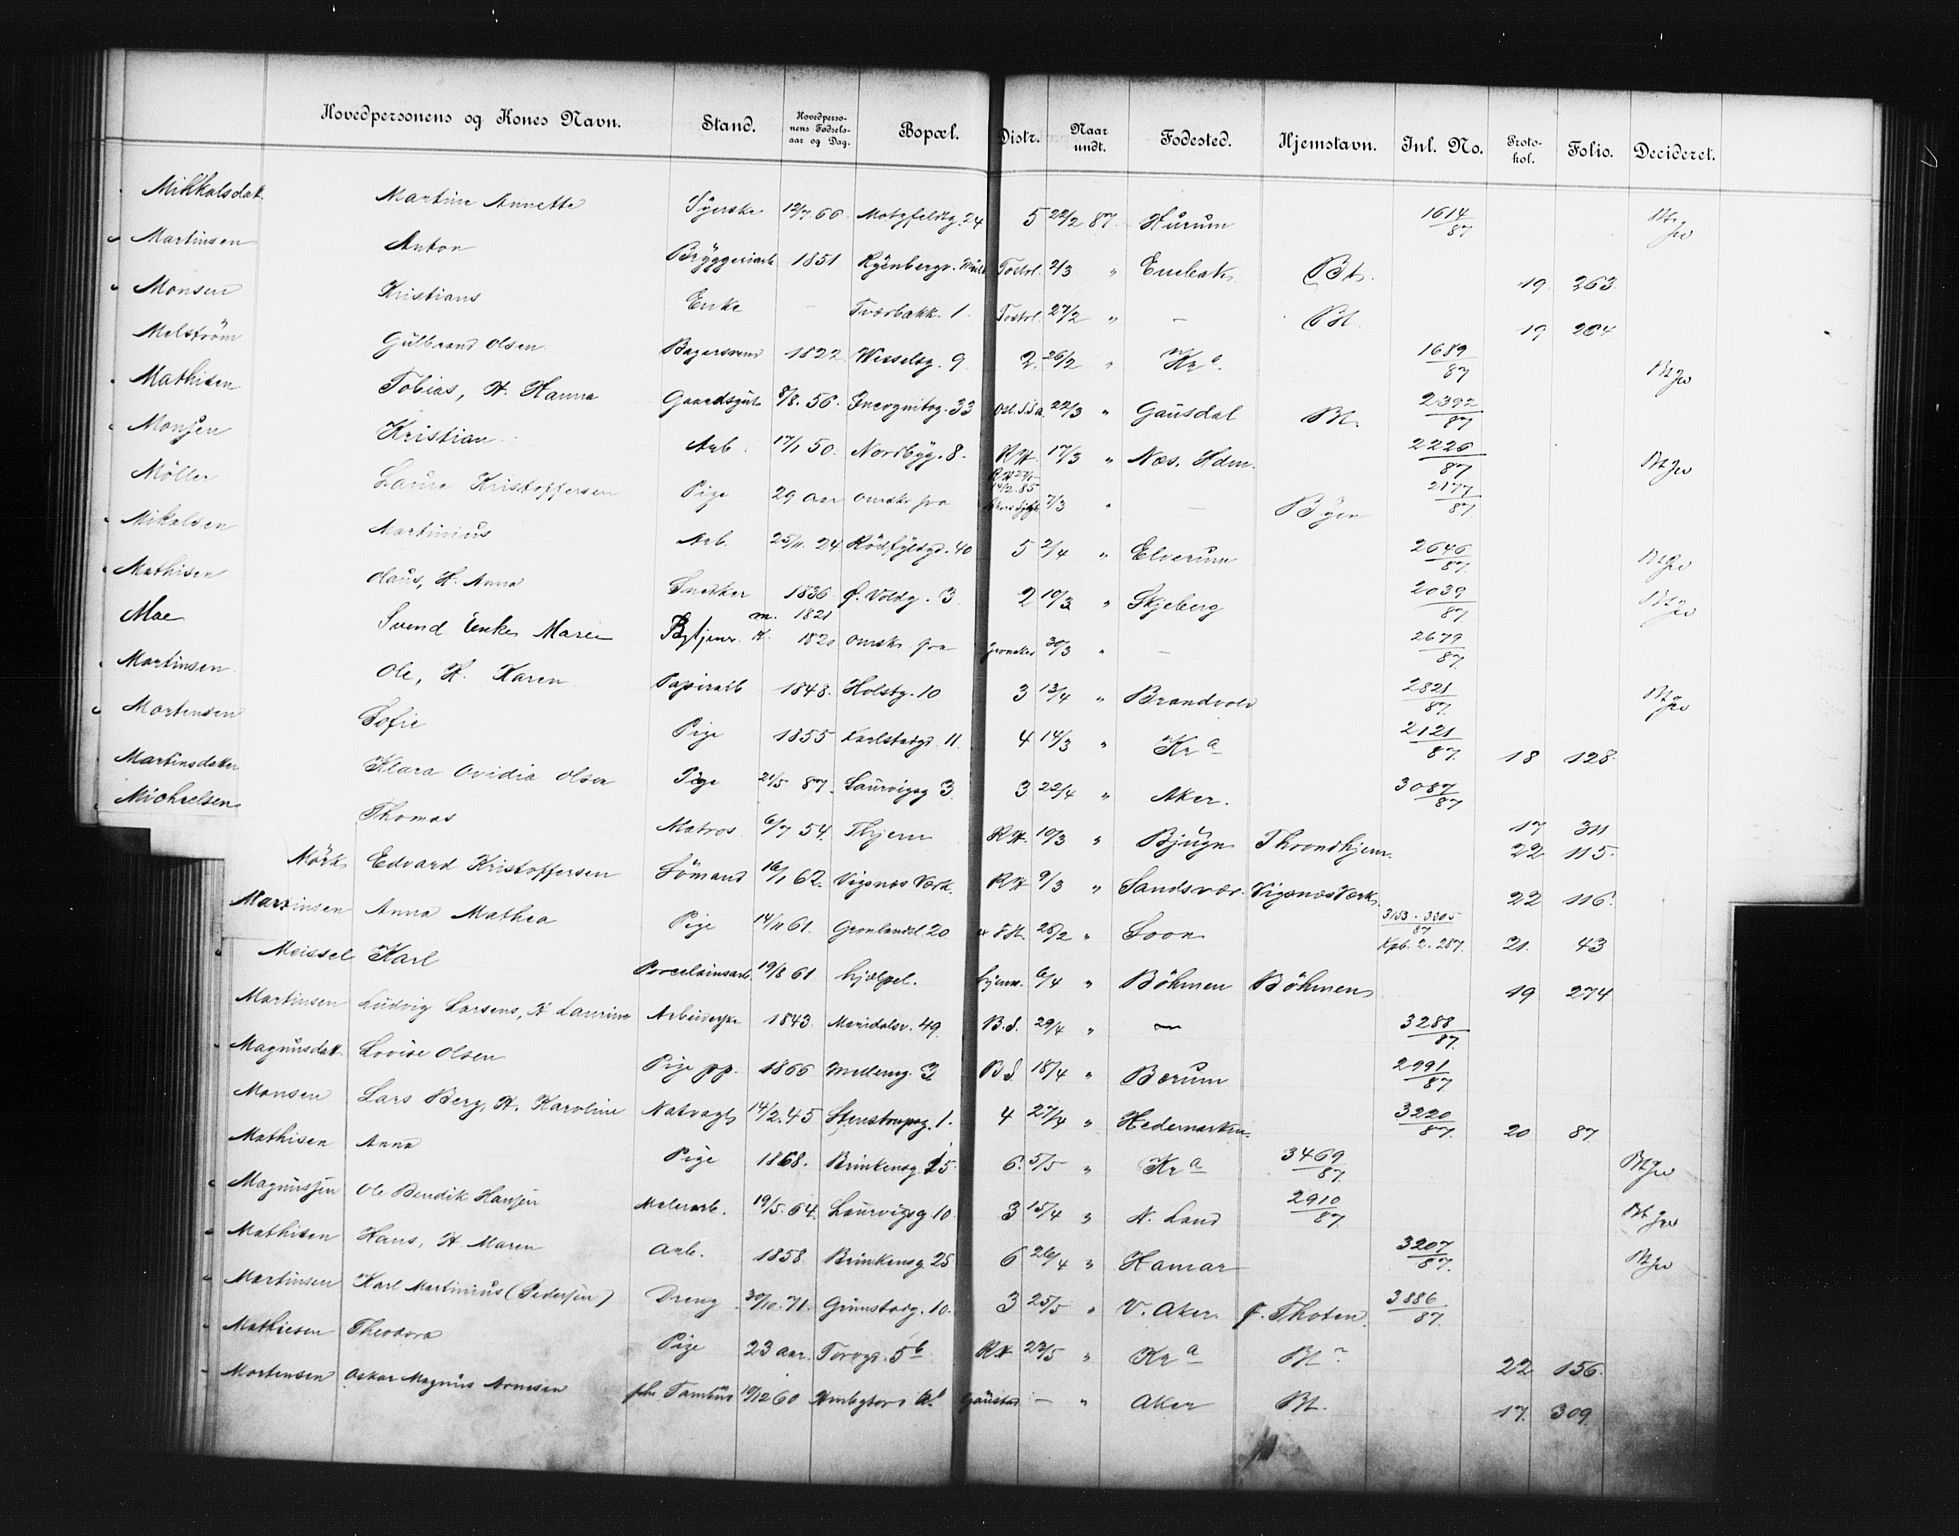 Hovedpersonens og Kones Navn. Stand. Hovedpersonens Fødselsaar og Dag. Bopæl. Distr. Naar undt. Fødested. Hjemstavn. Inl. No. Protokol. Folio. Decideret.
Mikkalsdatt. Martine Annette Syerske 12/7 66. Motzfeldtg. 24 5 22/2 87. Hurum 1614/87
Martinsen Anton Bryggeriarb 1851. Ryenbergv. Tostrl. 2/3 " Enebak Bt. 19 263
Monsen Kristians Enke – Tværbakk. 1. Tostrl. 27/2 " – Bt. 19 264
Melström Gulbrand Olsen Bagersvend 1822 Wesselsg. 9 2. 26/2 " Kra. 1689/87
Mathisen Tobias, H. Hanna Gaardsgut 8/8. 56. Incognitog. 33 22/3 " Gausdal Bt. 2392/87
Monsen Kristian Arb. 17/1 50. Nordbyg. 8. RH. 17/3 " Næs, Hdm. 2226/87
Möller Laura Kristoffersen Pige 29 aar ønsk. fra 14/2.85 7/3 " – Byen 2177/87
Mikalsen Martinius Arb. 25/11. 24 Rödfyldgd. 40 5 2/4 " Elverum 2646/87
Mathisen Olaus, H. Anna Snedker 1836 Ø. Voldg. 3 2 10/3 " Skjeberg 2039/87
Moe Svend Enke Marie m. 1821 1820 ønsk. fra 30/3 " – 2679/87
Martinsen Ole, H. Karen Papirarb 1848. Holstg. 10 3 13/4 " Brandvold 2821/87
Mortensen Sofie Pige 1855 Karlsborgd. 11. 4 14/3 " Kra 2121/87. 18 128
Martinsdatter Klara Ovidia Olsen Pige 21/5 87. Laurvigsg 3. 3 22/4 " Aker. 3087/87
Michaelsen Thomas Matros 6/7 54. Thjem RH. 10/3 " Bjugn Throndhjem. 17 311
22 115.
Mörk Edvard Kristoffersen Sömand 16/1 62. Vigsnæs Værk. RH 9/3 " Sandsvær. Vigsnæs Værk. 22 116.
Martinsen Anna Mathea Pige 14/11 61. Grønlandsl. 20 28/2 " Soon 3153. 3305/87 Kpb. 2. 287. 21. 43
Meissel Karl Porcelainsarb. 19/8 61. hjælpel. hjemv. 6/4 " Böhmen Böhmen 19 274
Martinsen Ludvig Larsens, H Laurine Arbeiderske 1843. Maridalsv. 49. B.S. 29/4 " – 3288/87.
Magnusdatt. Lovise Olsen Pige pp. 1866 Mellemg. 3 B.S. 18/4 " Bærum 2991/87
Monsen Lars Berg, H. Karoline Natvagt 14/2. 45 Stenstrupg. 1. 4 27/4 " Hedemarken. 3220/87. 20 87
Mathisen Anna Pige 1868. Brinkensg. 25. 6. 5/5 " Kra 3469/87.
Magnussen Ole Bendik Hansen Malerarb. 19/5. 64. Laurvigsg 10. 3 15/4 " N. Land 2910/87
Mathisen Hans, H. Maren Arb. 1858. Brinkensg 25 6 26/4 " Hamar 3207/87.
Martinsen Karl Martinius (Pedersen) Dreng 30/10. 71. Grimstadg. 10. 3 25/5 " V. Aker. Ø. Thoten. 3886/87.
Mathiesen Theodora Pige 23 aar. Torvgd. 5b RH 23/5 " Kra Bt? 22 156.
Mortensen Oskar Magnus Arnesen fhv. Tambur 19/12 60 Gaustad – " Aker Bt. 17. 309.